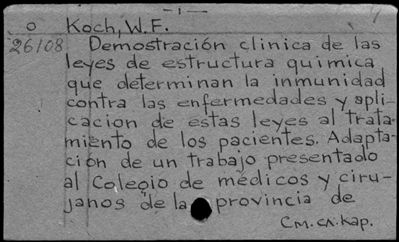 -1-
o Koch, W.F.
26108 Demostración clinica de las
leyes de estructura quimica
que determinan la inmunidad
contra las enfermedades y apli-
cacion de estas leyes al trata-
miento de los pacientes. Adapta-
ción de un trabajo presentado
al Colegio de médicos y ciru-
janos de la provincia de
См. сл. кар.